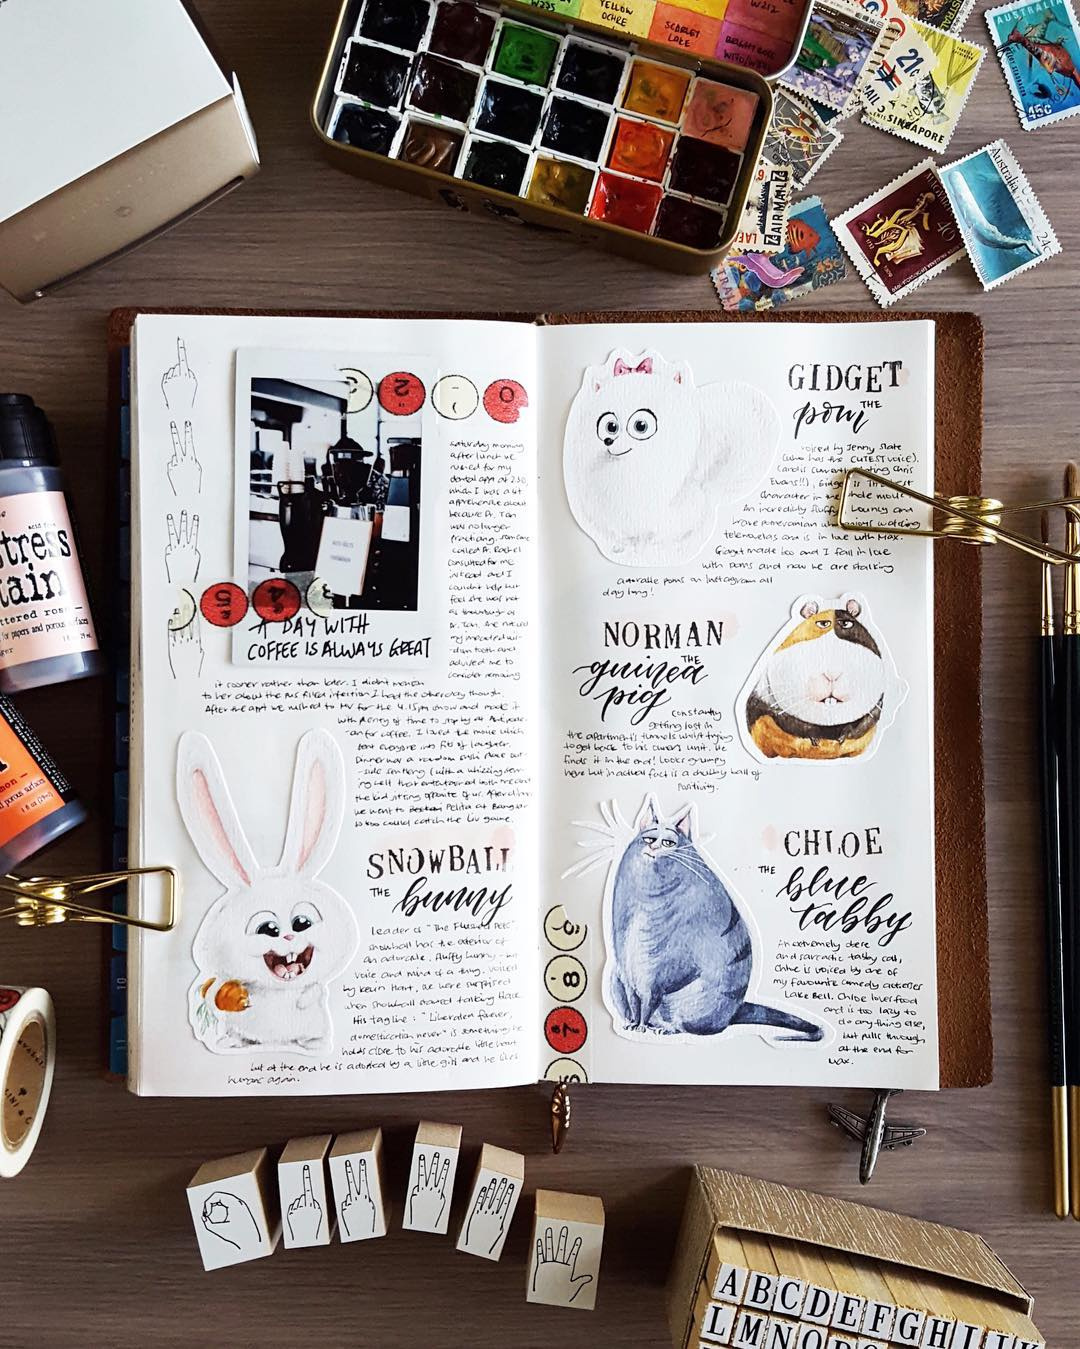 W235
YELLOW
OCHRE
SCARLET
LAKE
BRIGHT ROSE
21c
SINGAPORE
AUSTRALIA
45c
Australia
24c
40
AIR MAIL
45c
A DAY WITH
COFFEE IS ALWAYS GREAT
Saturday morning
after lunch we
rushed for my
dental appt at 2:30,
which I was a bit
apprehensive about
because Dr. Tan
was no longer
practising. Someone
called Dr. Rachel
consulted for me
instead and I
couldn't help but
feel she was not
as thorough as
Dr. Tan. She noticed
my impacted wis-
dom tooth and
advised me to
consider removing
it sooner rather than later. I didn't mention
to her about the pus filled infection I had the other day though.
After the appt we rushed to MV for the 4.15pm show and made it
with plenty of time to stop by at
for coffee. I loved the movie which
sent everyone into fits of laughter.
Dinner was a random sushi place out-
side
that entertained both me and
the kid sitting opposite of us. After dinner
we went to Pelita at Bangsar
so Loo could catch the Liv game.
SNOWBALL
THE bunny
leader of "The Flushed Pets"
Snowball has the exterior of
an adorable, fluffy bunny
voice and mind of a thug. Voiced
by Kevin Hart, we were surprised
when Snowball started talking
His tagline: "Liberated forever,
domesticated never" is something he
holds close to his adorable little heart
but at the end he is adopted by a little girl and he likes
humans again.
GIDGET
THE
pom
voiced by Jenny Slate
(who has the CUTEST voice).
(and is currently dating Chris
Evans!!), Gidget is the best
character in the whole movie.
An incredibly fluffy, bouncy and
brave pomeranian who enjoys watching
telenovelas and is in love with Max.
Gidget made Loo and I fall in love
with poms and now we are stalking
adorable poms on Instagram all
day long!
NORMAN
THE
guinea
pig
constantly
getting lost in
the apartment's tunnels whilst trying
to get back to his owners unit. He
finds it in the end! Looks grumpy
here but in actual fact is a chubby ball of
positivity.
CHLOE
THE blue
tabby
An extremely obese
and sarcastic tabby cat,
Chloe is voiced by one of
my favourite comedy actresses
Lake Bell. Chloe loves food
and is too lazy to
do anything else,
but pulls through
at the end for
Max.
acid free
stress
tain
tered rose
for papers and porous surfaces
ABCDEFGHIJK
LMNOP